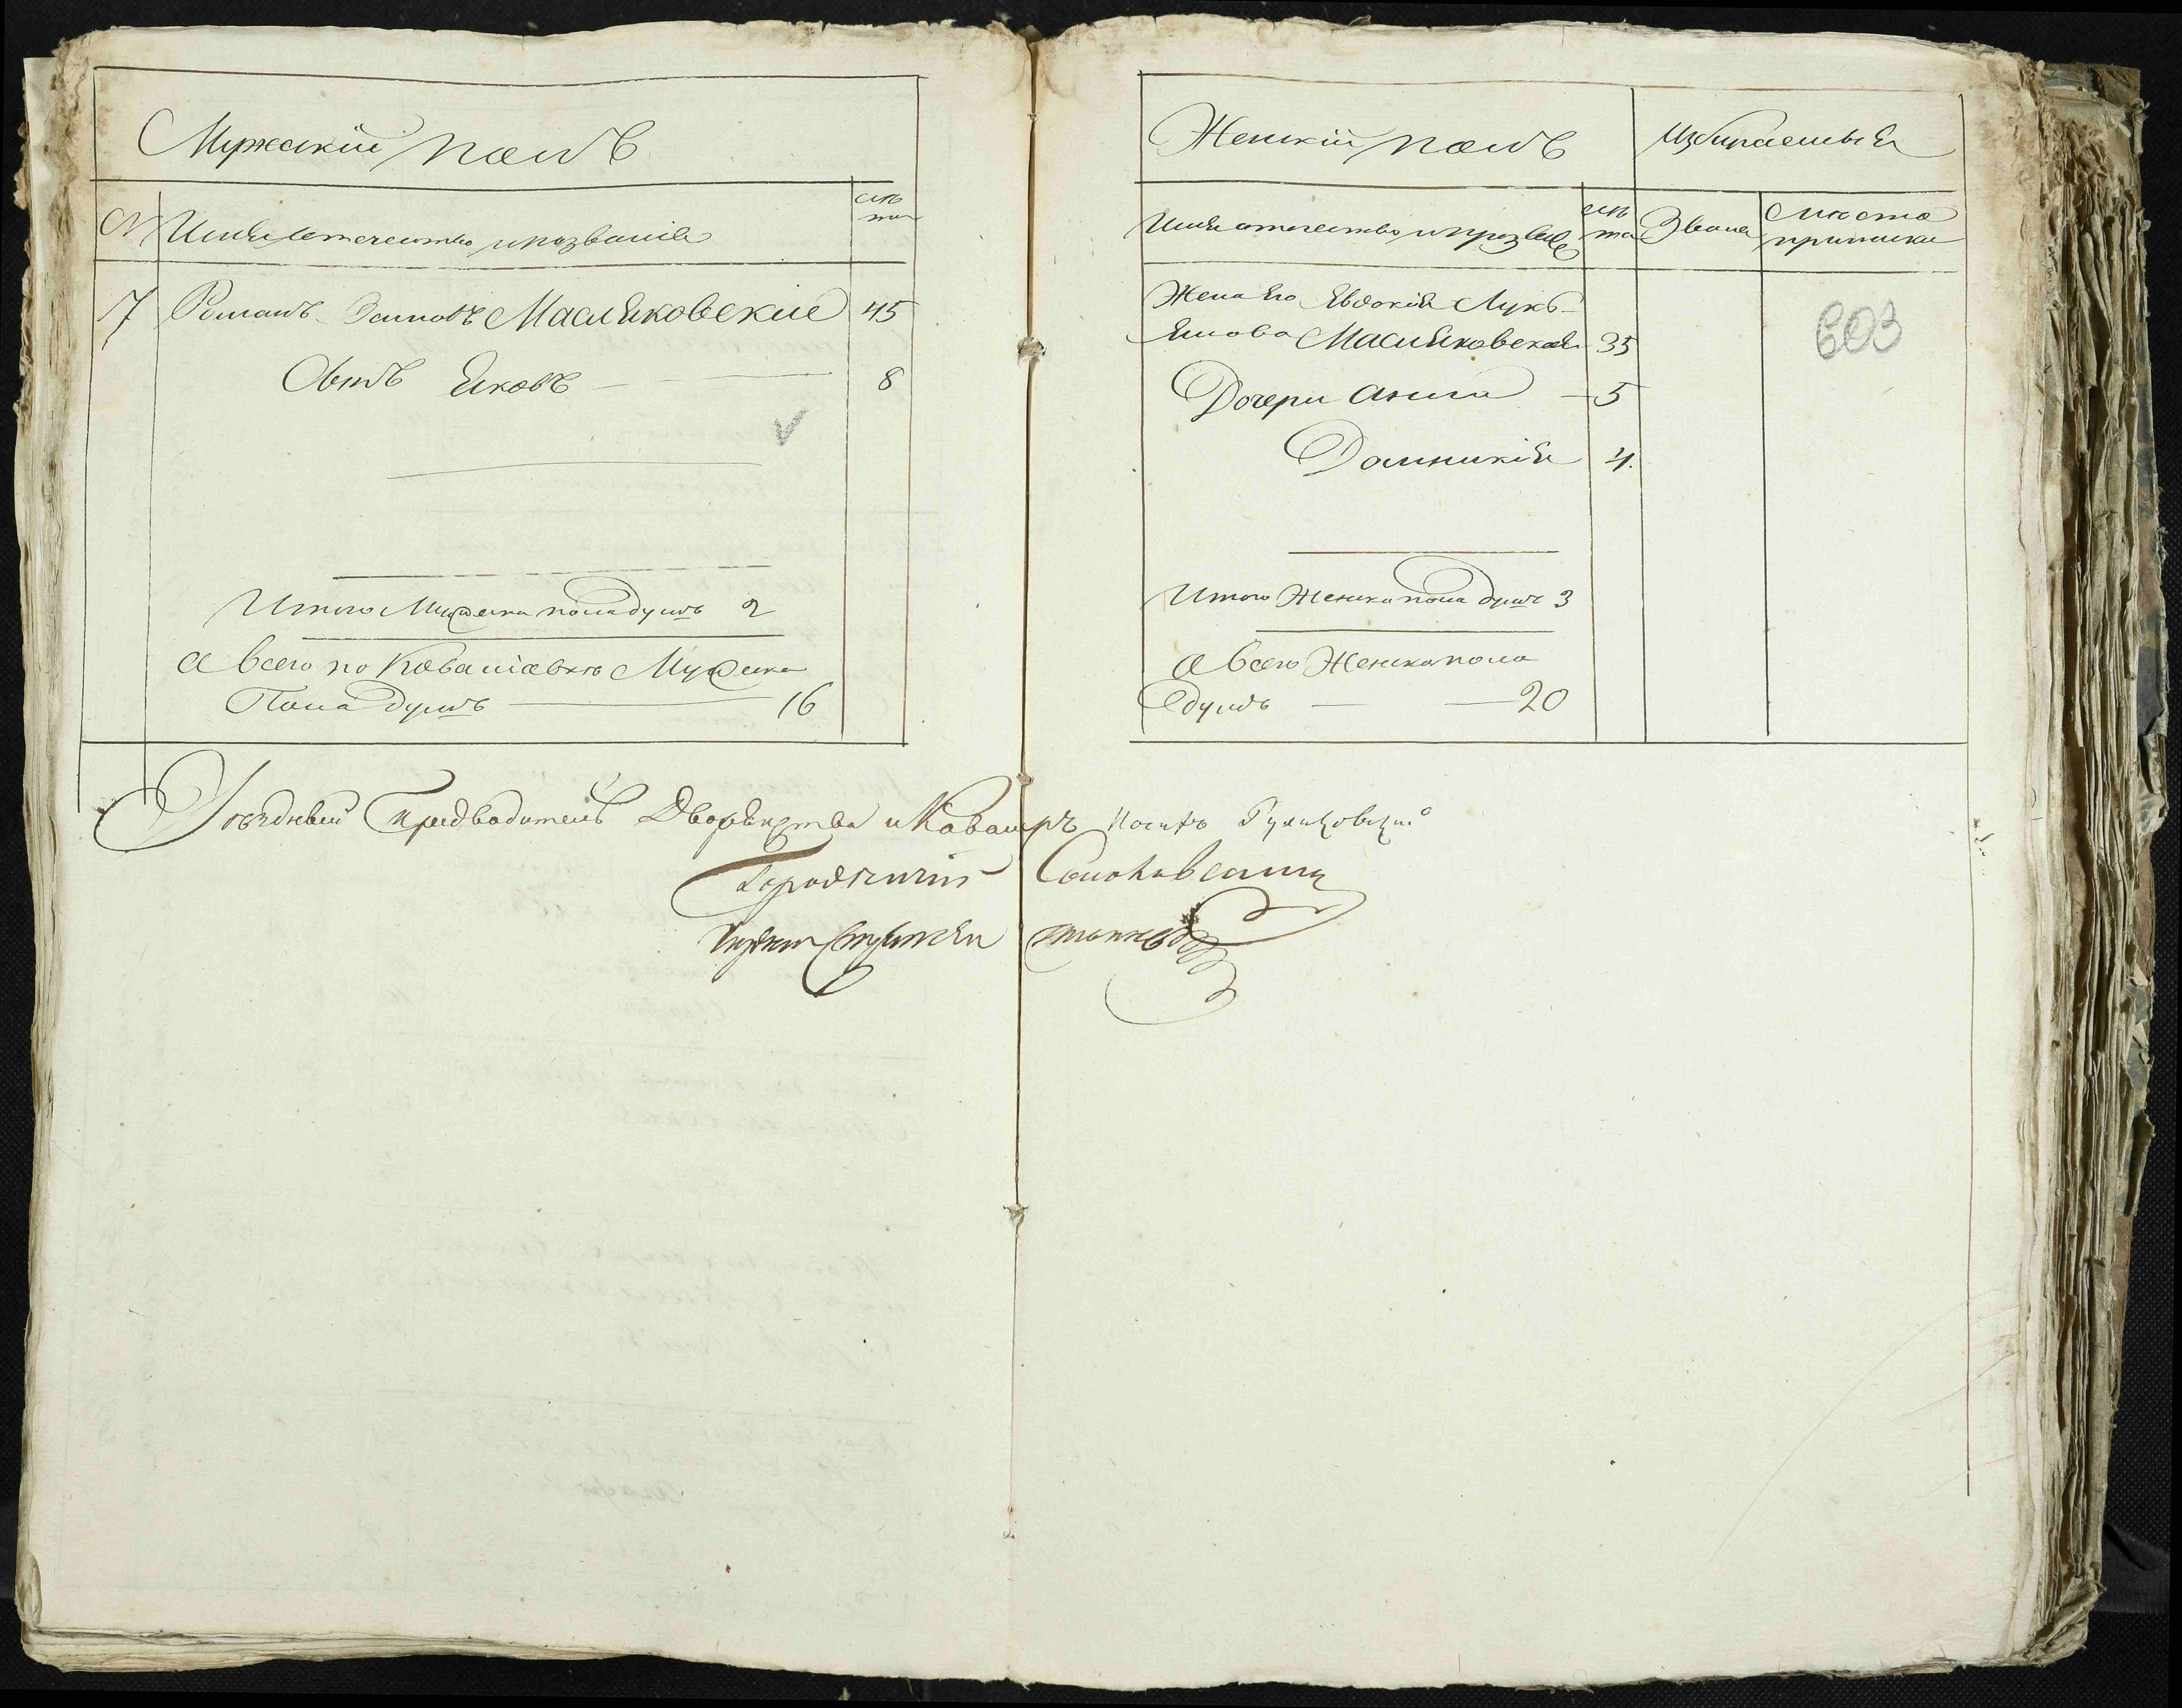 Мужескій полъ
№ Имя отечество и прозваніе лѣта
7 Романъ Осиповъ Масляковскій 45
Сынъ Яковъ 8
Итого Мужеска пола душъ 2
а всего по Ковалювкѣ Мужеска
Пола душъ 16
Женскій полъ
Избираемыя
Имя отечество и прозваніе лѣта Званіе Места приписки
Жена Его Евдокія Лукь-
янова Масляковская 35
603
Дочери Анна 5
Домникія 4.
Итого Женска пола душъ 3
а всего Женска пола
душъ 20
Уѣздный Предводитель Дворянства и Кавалеръ Іосифъ Руликовскій
Городничій